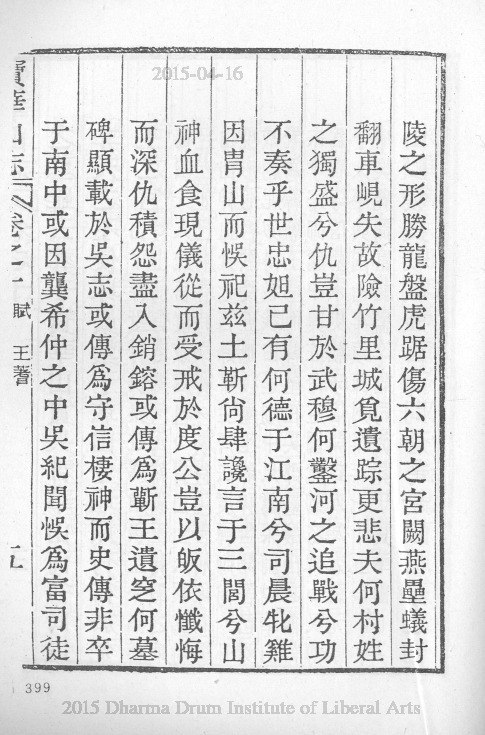 2015-04-16
陵之形勝龍盤虎踞傷六朝之宮闕燕壘蟻封
翻車峴失故險竹里城覓遺踪更悲夫何村姓
之獨盛兮仇豈甘於武穆何鑿河之追戰兮功
不奏乎世忠妲己有何德于江南兮司晨牝雞
因胄山而悞祀茲土靳尚肆讒言于三閭兮山
神血食現儀從而受戒於度公豈以皈依懺悔
而深仇積怨盡入銷鎔或傳為蘄王遺窆何墓
碑顯載於吳志或傳為守信棲神而史傳非卒
于南中或因龔希仲之中吳紀聞悞為富司徒
寶華山志 卷之一 賦 王著
399
2015 Dharma Drum Institute of Liberal Arts